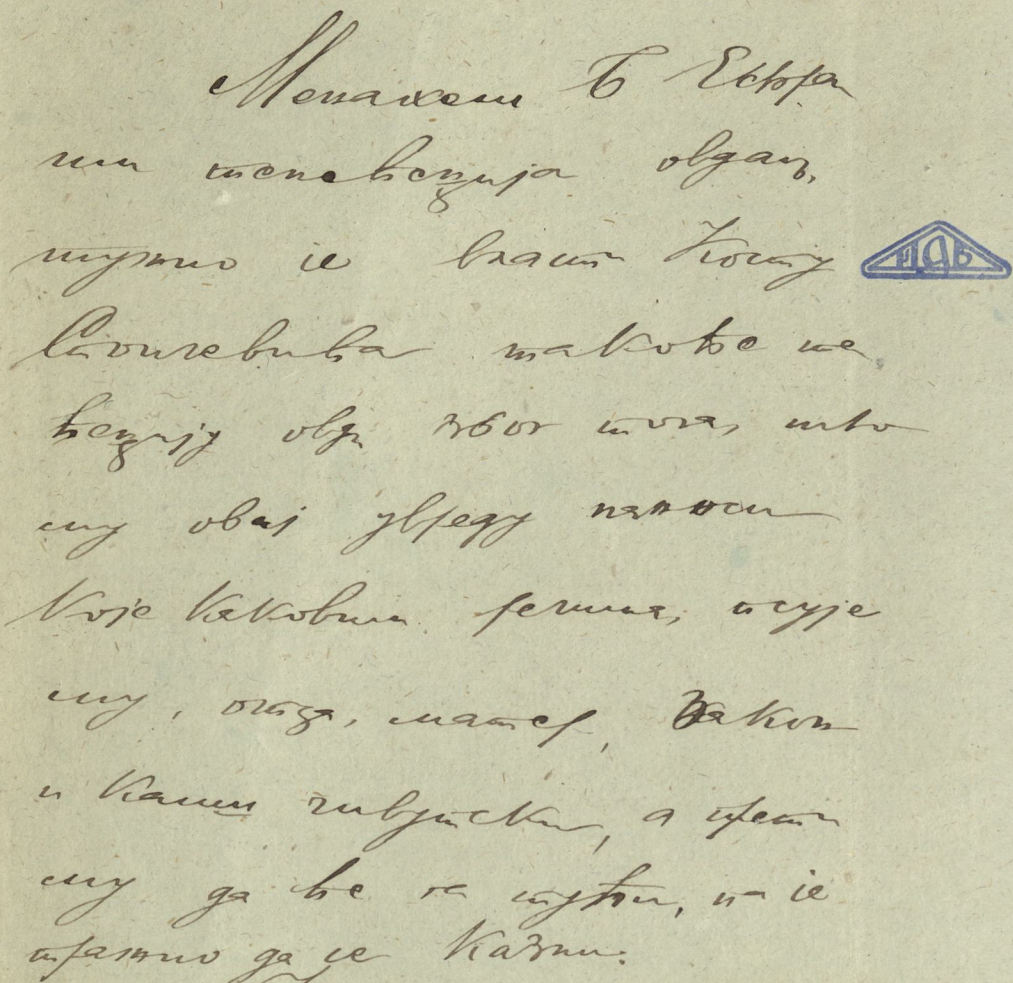 Менахем Б Ешра
им тенећеџија овдаш.
тужио је власти Косту
Стоичевића такође те
ћеџију овд. због тога, што
му овај увреду наноси
Које Каковим речима, псује
му, отца, матер, Закон
и Капит чивутски, а прети
му да ће га тући, па је
тражио да се Казни.
ИАБ